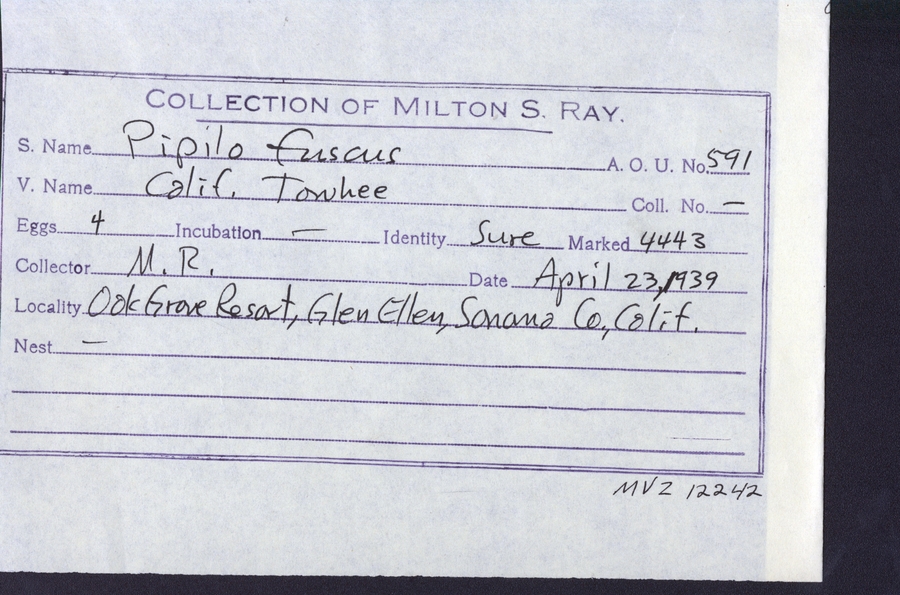 COLLECTION OF MILTON S. RAY.
S. Name Pipilo fuscus A. O. U. No. 591
V. Name Calif. Towhee Coll. No. —
Eggs 4 Incubation — Identity Sure Marked 4443
Collector M. R. Date April 23, 1939
Locality Oak Grove Resort, Glen Ellen, Sonoma Co., Calif.
Nest —
MVZ 12242